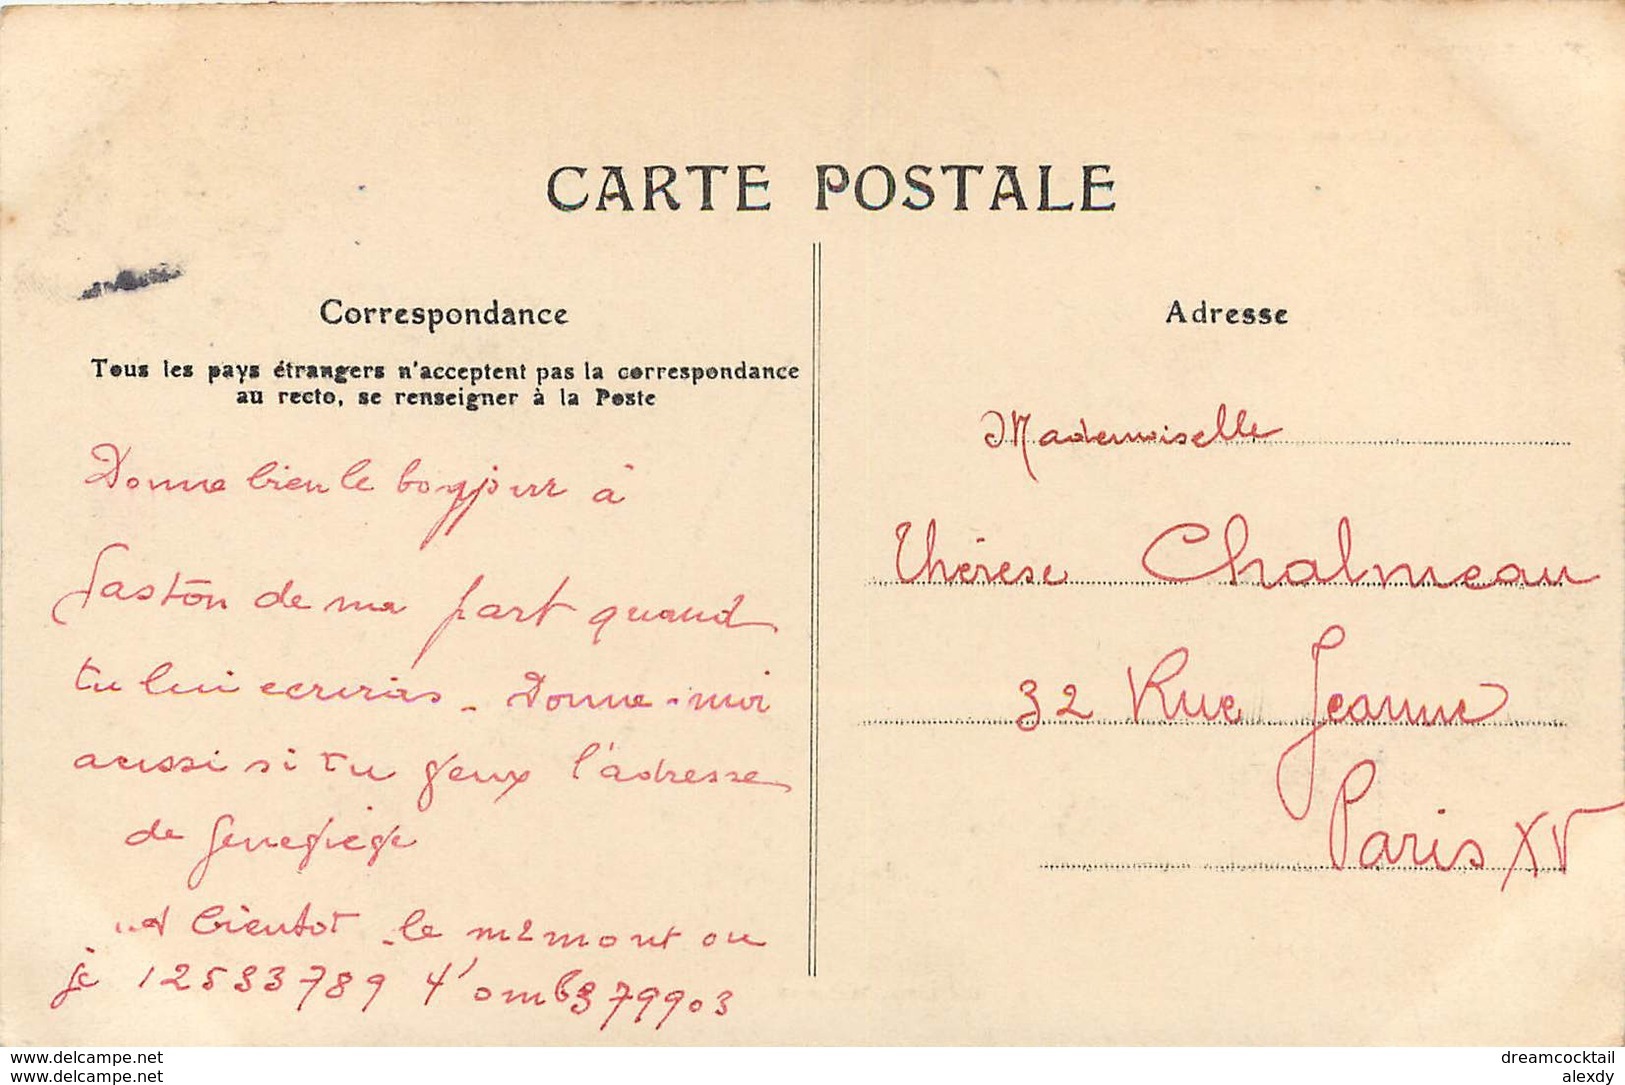 CARTE POSTALE
Correspondance
Tous les pays étrangers n'acceptent pas la correspondance
au recto, se renseigner à la Poste
Donne bien le bonjour à
Gaston de ma part quand
tu lui ecriras - Donne-moi
aussi si tu veux l'adresse
de Geneviève
A bientot - le mement ou
je 12533789 4' omb379903
Adresse
Mademoiselle
Thérèse Chalmeau
32 Rue Jeanne
Paris XV
www.delcampe.net
www.delcampe.net
dreamcocktail
alexdy